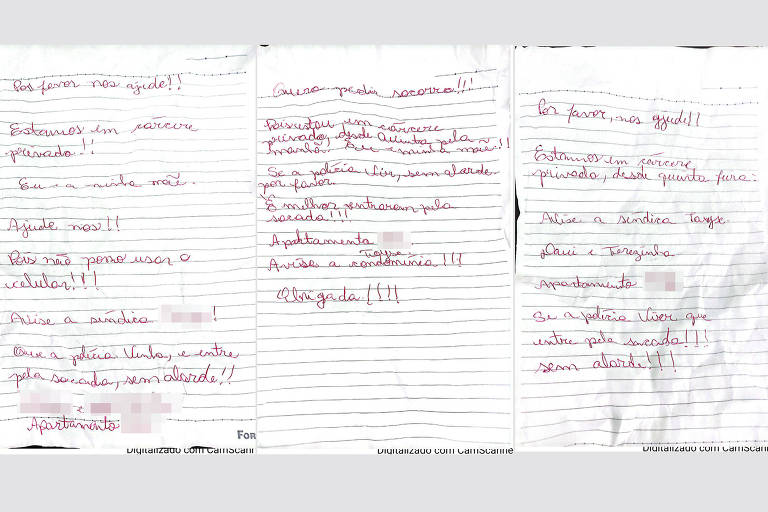 Por favor nos ajude!!
Estamos em cárcere
privado!!
Eu e a minha mãe.
Ajude nos!!
Pois não posso usar o
celular!!!
Avise a síndica !
Que a polícia venha, e entre
pela sacada, sem alarde!!
e
Apartamento
FOR
Digitalizado com CamScanne
Quero pedir socorro!!!
Pois estou em cárcere
privado, desde quinta pela
manhã. Eu e minha mãe!!
Se a polícia vir, sem alarde
por favor
É melhor entrarem pela
sacada!!!
Apartamento
Tayse
Avise a condomínia!!!
Obrigada!!!!
Digitalizado com CamScanne
Por favor, nos ajude!!
Estamos em cárcere
privado, desde quinta feira.
Avise a síndica Tayse
Daui e Terezinha
Apartamento
Se a polícia vier que
entre pela sacada!!!
sem alarde!!!
Digitalizado com CamScanne